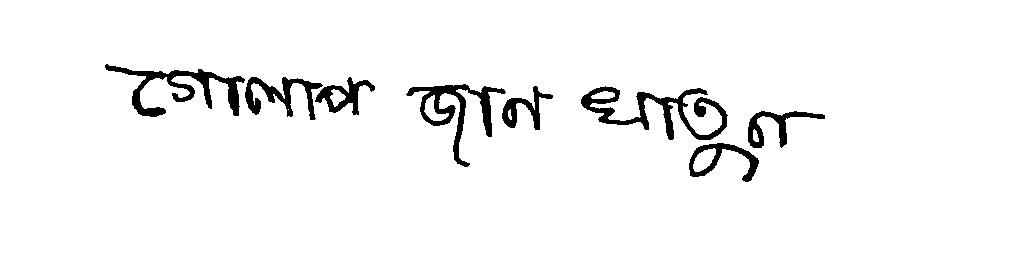 গোলাপ জান খাতুন